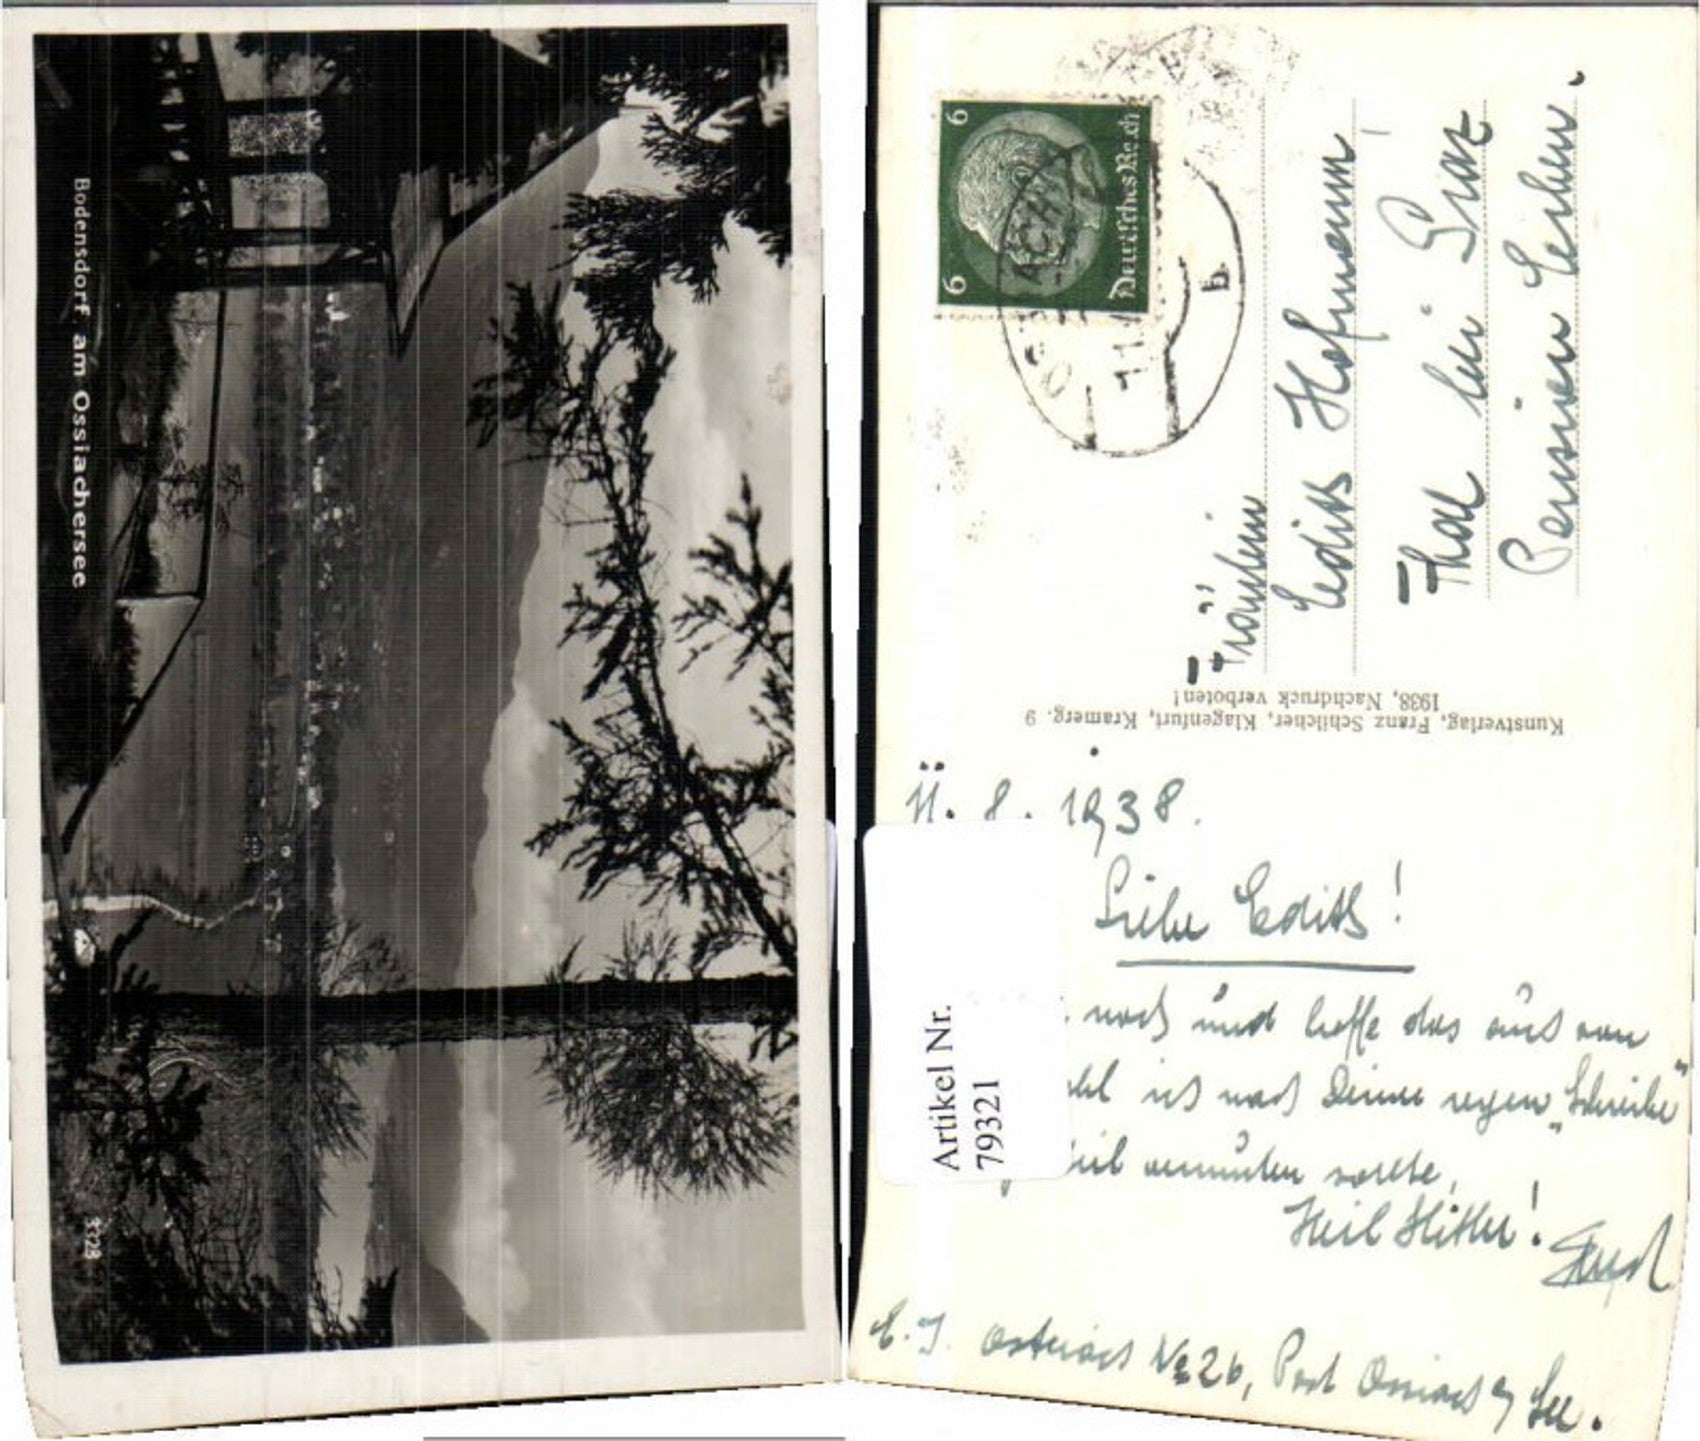 Bodensdorf am Ossiachersee
3323
6
6
Deutsches Reich
b
Fräulein
Edith Hofmann
Thal bei Graz
Pension Erben.
Kunstverlag, Franz Schilcher, Klagenfurt, Kramerg. 9
1938, Nachdruck verboten!
11. 8. 1938.
Liebe Edith!
noch und hoffe das auch von
ich nach Deiner regen „Schreibe"
vermuten sollte.
Heil Hitler!
Artikel Nr.
79321
Osteriach № 26, Post Ossiach a/ See.